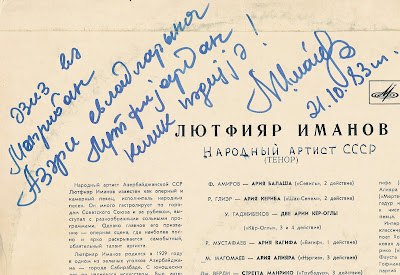 Әзиз вә
Меһрибан
Азәри евладларына
Лүтфијардан
Кичик һәдијјә!
21.10.83 г.
ЛЮТФИЯР ИМАНОВ
НАРОДНЫЙ АРТИСТ СССР
(ТЕНОР)
Народный артист Азербайджанской ССР
Лютфияр Иманов известен как оперный и
камерный певец, исполнитель народных
песен. Он много гастролирует по городам
Советского Союза и за рубежом, выступая
с разнообразными сольными
программами. Однако главное его призвание
— оперная сцена, где наиболее полно
и ярко раскрывается самобытный,
обаятельный талант артиста.
Лютфияр Иманов родился в 1929 году
в одном из зеленых уголков Азербайджана
— городе Сабирабаде. С юношеских
Ф. АМИРОВ — АРИЯ БАЛАША («Севиль», 2 действие)
Р. ГЛИЭР — АРИЯ КЕРИБА («Шах-Сенем», 2 действие)
У. ГАДЖИБЕКОВ — ДВЕ АРИИ КЕР-ОГЛЫ
(«Кёр-Оглы», 3 и 4 действия)
Р. МУСТАФАЕВ — АРИЯ ВАГИФА («Вагиф», 1 действие)
М. МАГОМАЕВ — АРИЯ АЛИЯРА («Нэргиз», 1 действие)
Дж. ВЕРДИ — СТРЕТТА МАНРИКО («Трубадур», 3 действие)